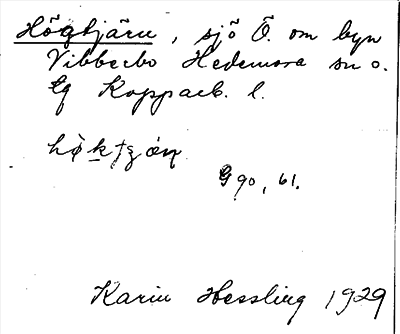 Högtjärn, sjö Ö. om byn
Vibberbo Hedemora sn o.
Kopparb. l.
G 90, 61.
Karin Hessling 1929